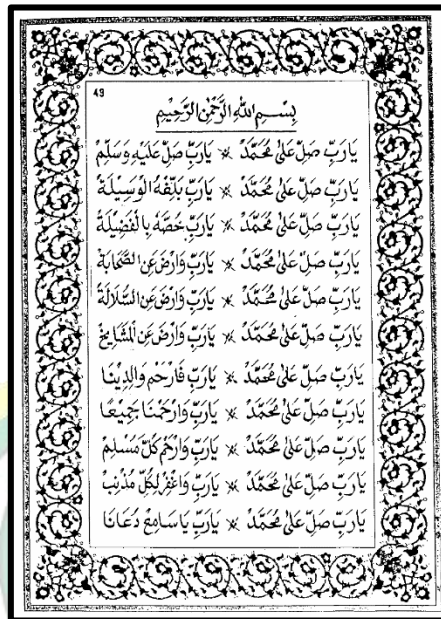 49
بِسْمِ اللهِ الرَّحْمٰنِ الرَّحِيْمِ
يَارَبِّ صَلِّ عَلٰى مُحَمَّدْ * يَارَبِّ صَلِّ عَلَيْهِ وَسَلِّمْ
يَارَبِّ صَلِّ عَلٰى مُحَمَّدْ * يَارَبِّ بَلِّغْهُ الْوَسِيْلَةْ
يَارَبِّ صَلِّ عَلٰى مُحَمَّدْ * يَارَبِّ خُصَّهُ بِالْفَضِيْلَةْ
يَارَبِّ صَلِّ عَلٰى مُحَمَّدْ * يَارَبِّ وَارْضَ عَنِ الصَّحَابَةْ
يَارَبِّ صَلِّ عَلٰى مُحَمَّدْ * يَارَبِّ وَارْضَ عَنِ السُّلَالَةْ
يَارَبِّ صَلِّ عَلٰى مُحَمَّدْ * يَارَبِّ وَارْضَ عَنِ الْمَشَايِخْ
يَارَبِّ صَلِّ عَلٰى مُحَمَّدْ * يَارَبِّ فَارْحَمْ وَالِدِيْنَا
يَارَبِّ صَلِّ عَلٰى مُحَمَّدْ * يَارَبِّ وَارْحَمْنَا جَمِيْعًا
يَارَبِّ صَلِّ عَلٰى مُحَمَّدْ * يَارَبِّ وَارْحَمْ كُلَّ مُسْلِمْ
يَارَبِّ صَلِّ عَلٰى مُحَمَّدْ * يَارَبِّ وَاغْفِرْ لِكُلِّ مُذْنِبْ
يَارَبِّ صَلِّ عَلٰى مُحَمَّدْ * يَارَبِّ يَاسَامِعْ دُعَانَا